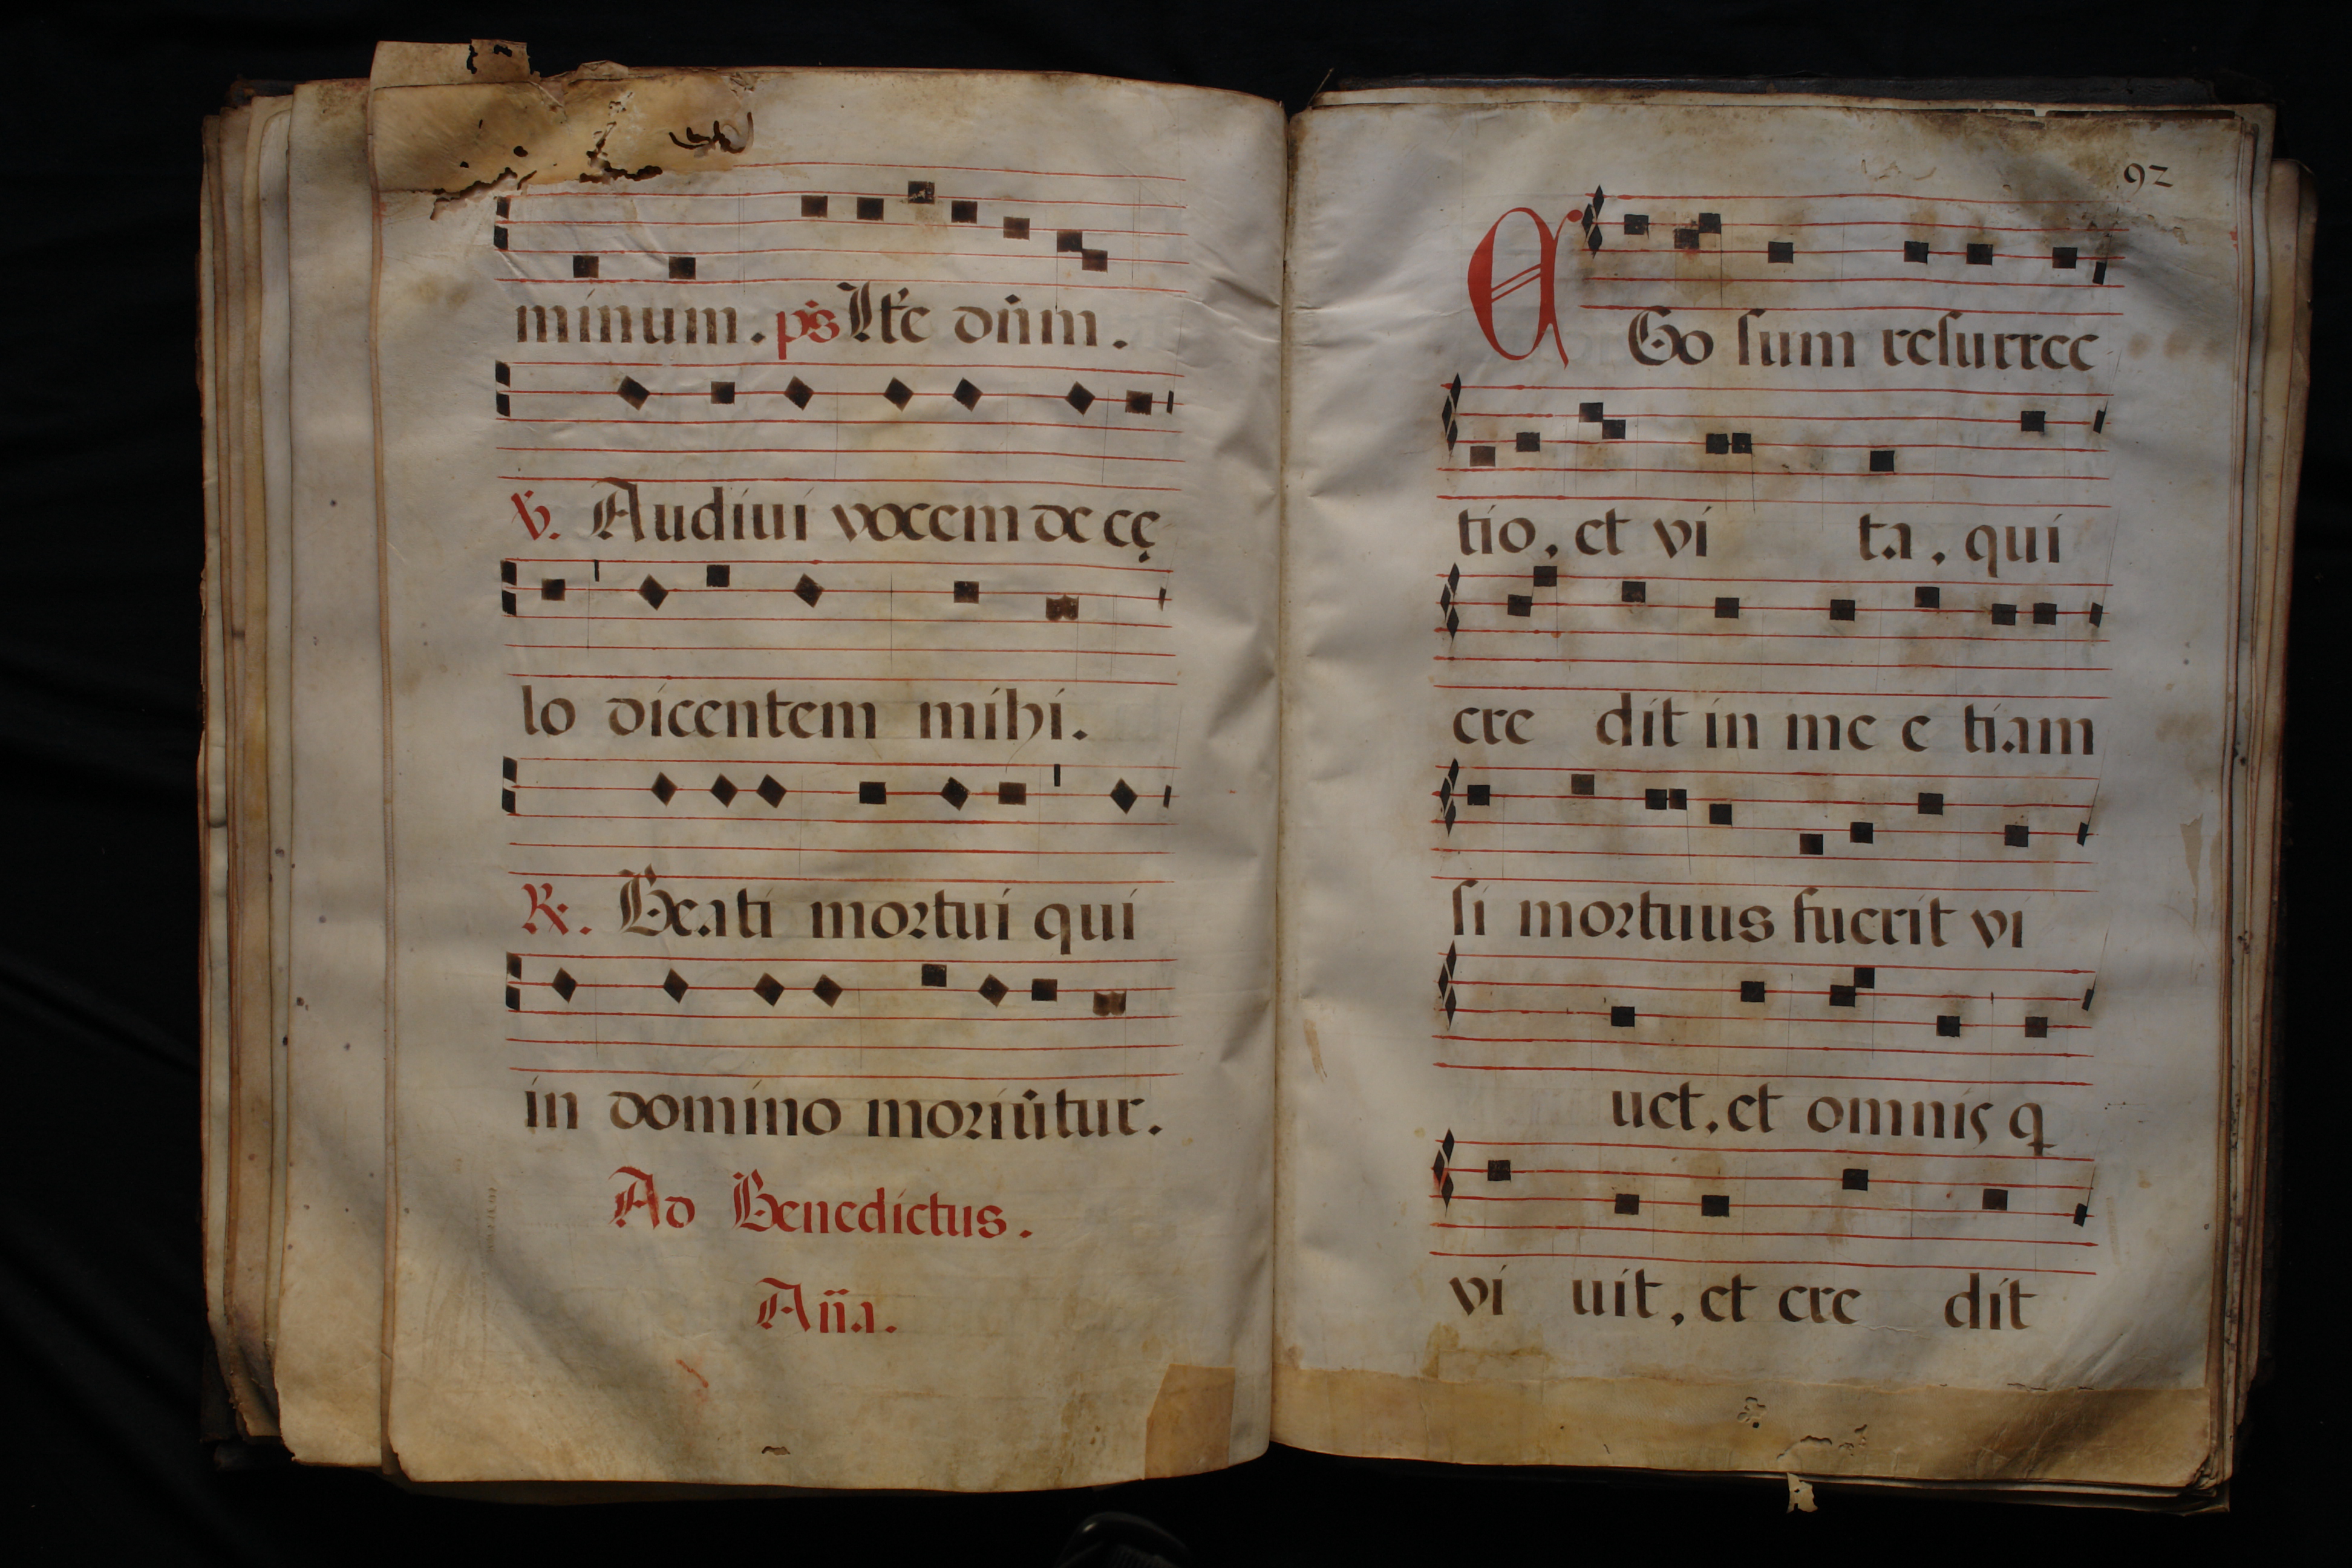 minum. ps Lte dñm.
℣. Audiui vocem de cę
lo dicentem mihi.
℟. Beati mortui qui
in domino moriũtur.
Ad Benedictus.
Aña.
92
EGo sum resurrec
tio, et vi ta, qui
cre dit in me e tiam
si mortuus fuerit vi
uet, et omnis q
vi uit, et cre dit